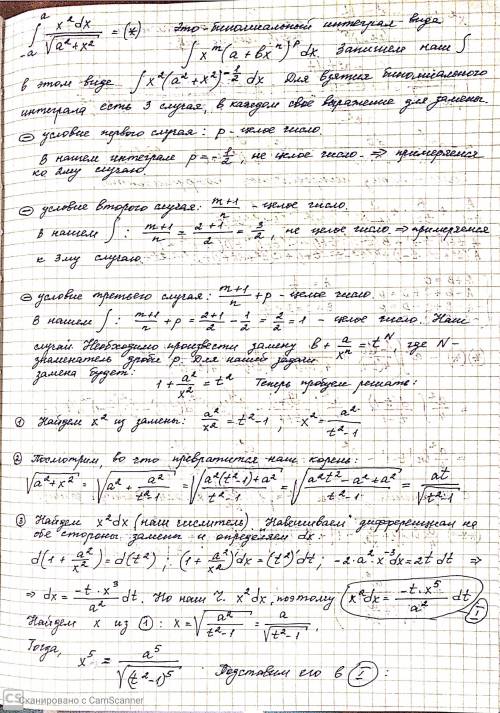 ∫_{-a}^{a} x² dx / √(a² + x²) = (*) Это - биномиальный интеграл вида
∫ x^m (a + bx^n)^p dx. Запишем наш ∫
в этом виде ∫ x² (a² + x²)^{-1/2} dx Для взятия биномиального
интеграла есть 3 случая, в каждом своё выражение для замены.
⊖ условие первого случая: p - целое число.
В нашем интеграле p = -1/2, не целое число ⇒ примеряемся
ко 2му случаю
⊖ условие второго случая: (m+1)/n - целое число.
В нашем ∫: (m+1)/n = (2+1)/2 = 3/2, не целое число ⇒ примеряемся
к 3му случаю
⊖ условие третьего случая: (m+1)/n + p - целое число.
В нашем ∫: (m+1)/n + p = (2+1)/2 - 1/2 = 2/2 = 1 - целое число. Наш
случай. Необходимо произвести замену b + a/x^n = t^N, где N -
знаменатель дроби p. Для нашей задачи
замена будет: 1 + a²/x² = t² Теперь пробуем решать:
① Найдем x² из замены: a²/x² = t² - 1 ; x² = a²/(t² - 1)
② Посмотрим во что превратится наш корень:
√(a² + x²) = √(a² + a²/(t² - 1)) = √((a²(t² - 1) + a²)/(t² - 1)) = √((a²t² - a² + a²)/(t² - 1)) = at/√(t² - 1)
③ Найдем x² dx (наш числитель). "Навешиваем" дифференциал на
обе стороны замены и определяем dx:
d(1 + a²/x²) = d(t²) ; (1 + a²/x²)' dx = (t²)' dt ; -2·a²·x^{-3} dx = 2t dt ⇒
⇒ dx = (-t·x³/a²) dt. Но нам ч. x² dx, поэтому x² dx = (-t·x⁵/a²) dt Ⓘ
Найдем x из ①: x = √(a²/(t² - 1)) = a/√(t² - 1).
Тогда, x⁵ = a⁵/√((t² - 1)⁵). Подставим его в Ⓘ:
CS Сканировано с CamScanner